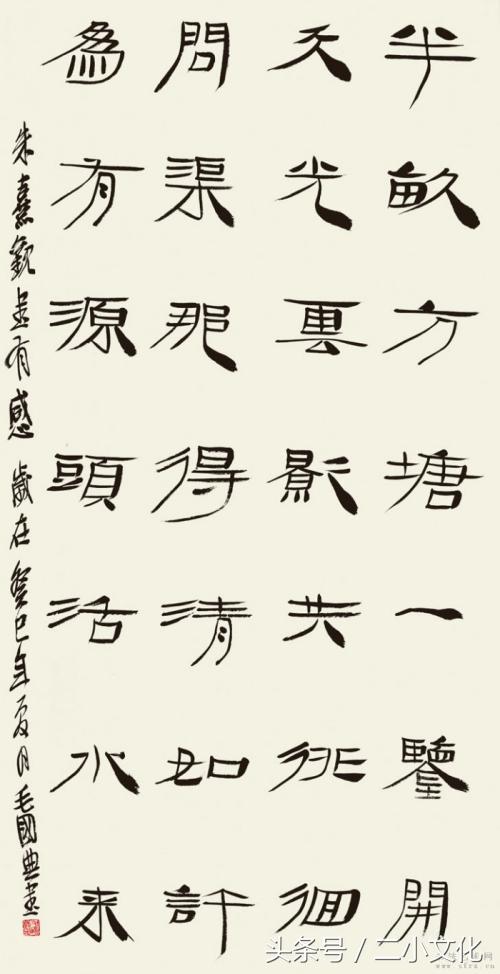 半畝方塘一鑒開
天光雲影共徘徊
問渠那得清如許
為有源頭活水來
朱熹觀書有感 歲在癸巳年夏月毛國典書
头条号／二小文化